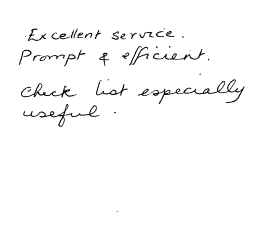 Excellent service.
Prompt & efficient.
Check list especially
useful.